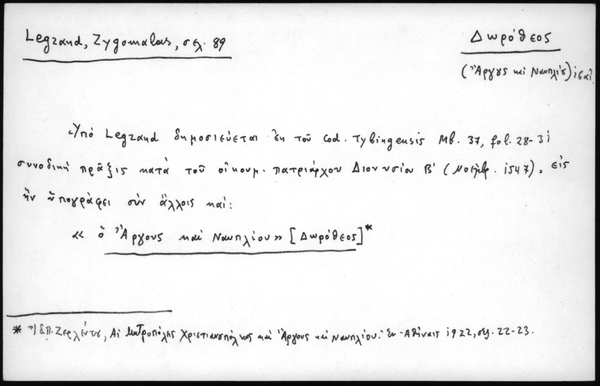 Legrand, Zygomalas, σελ. 89
Δωρόθεος
(Ἄργους καὶ Ναυπλίου)
Ὑπὸ Legrand δημοσιεύεται ἐκ τοῦ Cod. Tybingensis Mb. 37, fol. 28-31
συνοδικὴ πρᾶξις κατὰ τοῦ οἰκουμ. πατριάρχου Διονυσίου Β' (Νοέμβρ. 1547), εἰς
ἣν ὑπογράφει σὺν ἄλλοις καί:
« ὁ Ἄργους καὶ Ναυπλίου» [Δωρόθεος]*
* Π. Ζερλέντου, Αἱ Μητροπόλεις Χριστιανουπόλεως καὶ Ἄργους καὶ Ναυπλίου. Ἐν Ἀθήναις 1922, σελ. 22-23.